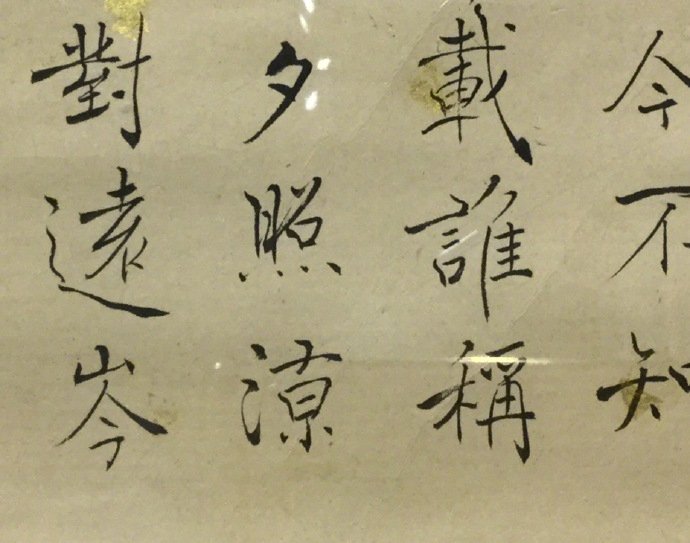 今不知
載誰稱
夕照涼
對遠岑